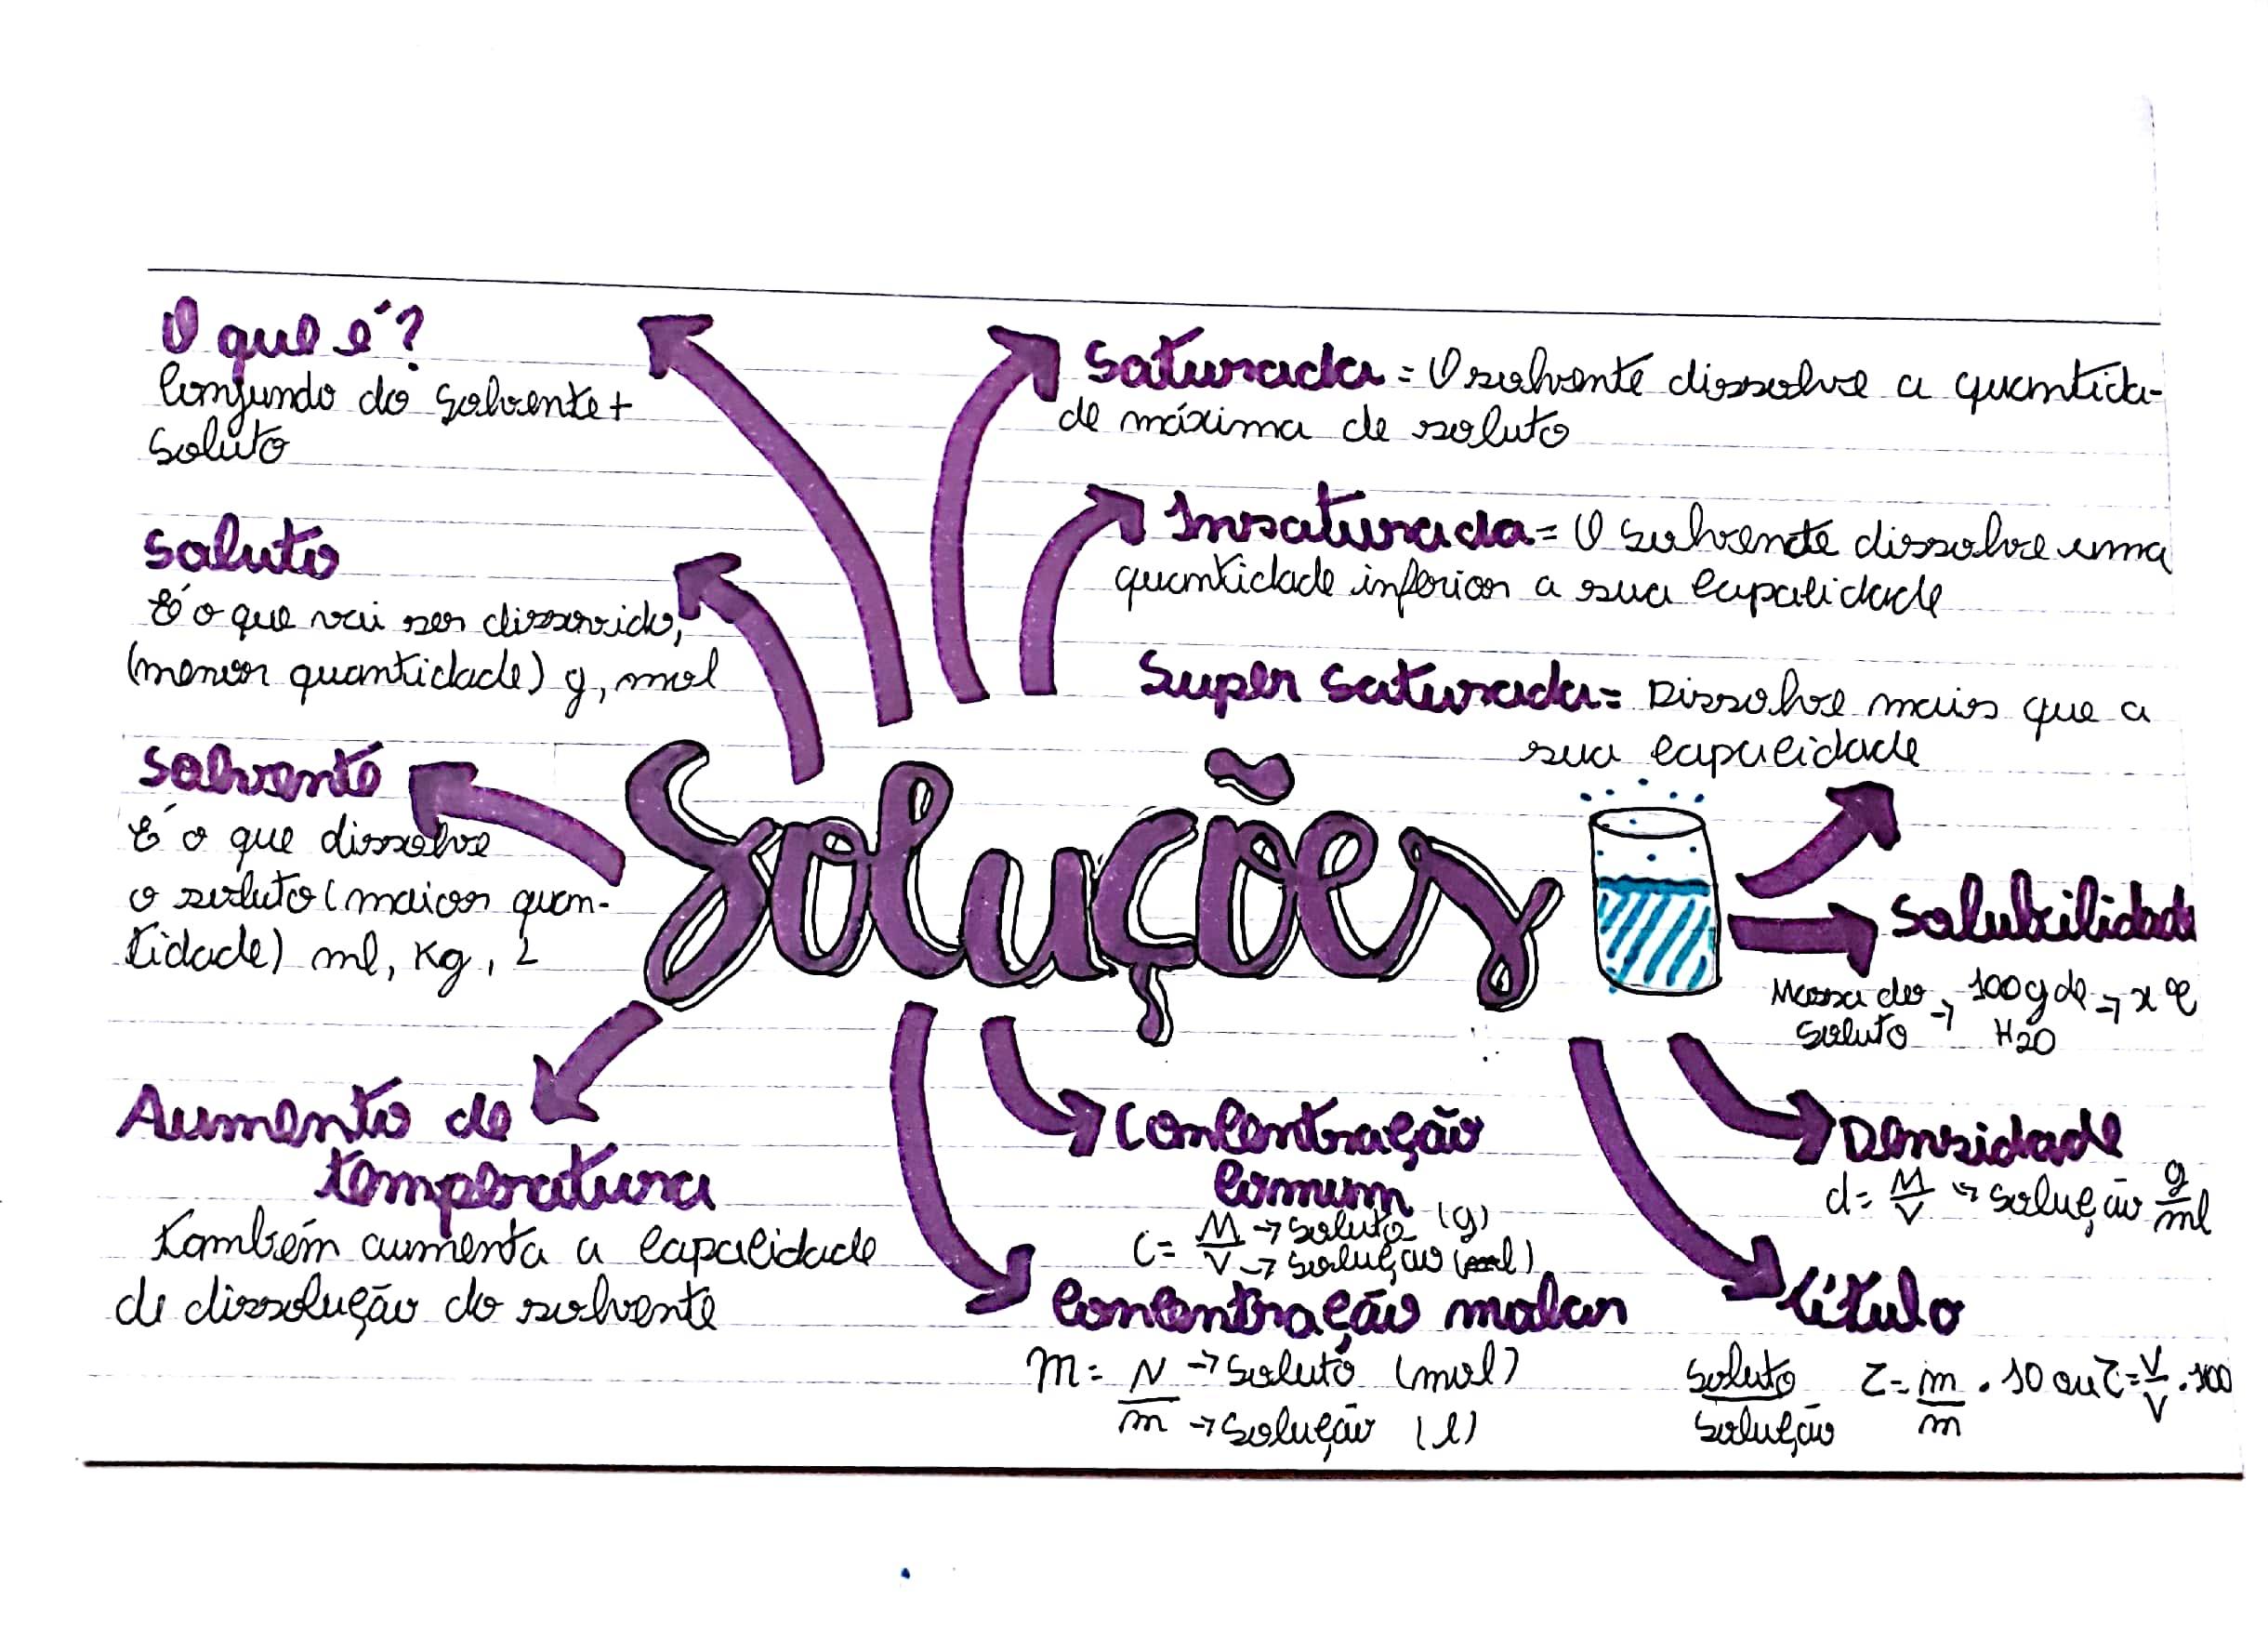 O que é?
Conjundo do solvente +
Soluto
Soluto
É o que vai ser dissorvido,
(menor quantidade) g, mol
Solvente
É o que dissolve
o soluto (maior quan-
tidade) ml, Kg, L
Aumento de
temperatura
também aumenta a capacidade
de dissolução do solvente
Saturada = O solvente dissolve a quantida-
de máxima de soluto
Insaturada = O solvente dissolve uma
quantidade inferior a sua capacidade
Super saturada = Dissolve mais que a
sua capacidade
Soluções
Solubilidade
Massa do → 100g de → x ºC
Soluto H2O
Densidade
d = M/V → solução g/ml
Concentração
Comum
C = M → soluto (g)
V → solução (ml)
Concentração molar
m = N → Soluto (mol)
m → Solução (l)
título
Soluto/Solução τ = m/m . 10 ou τ = V/V . 100